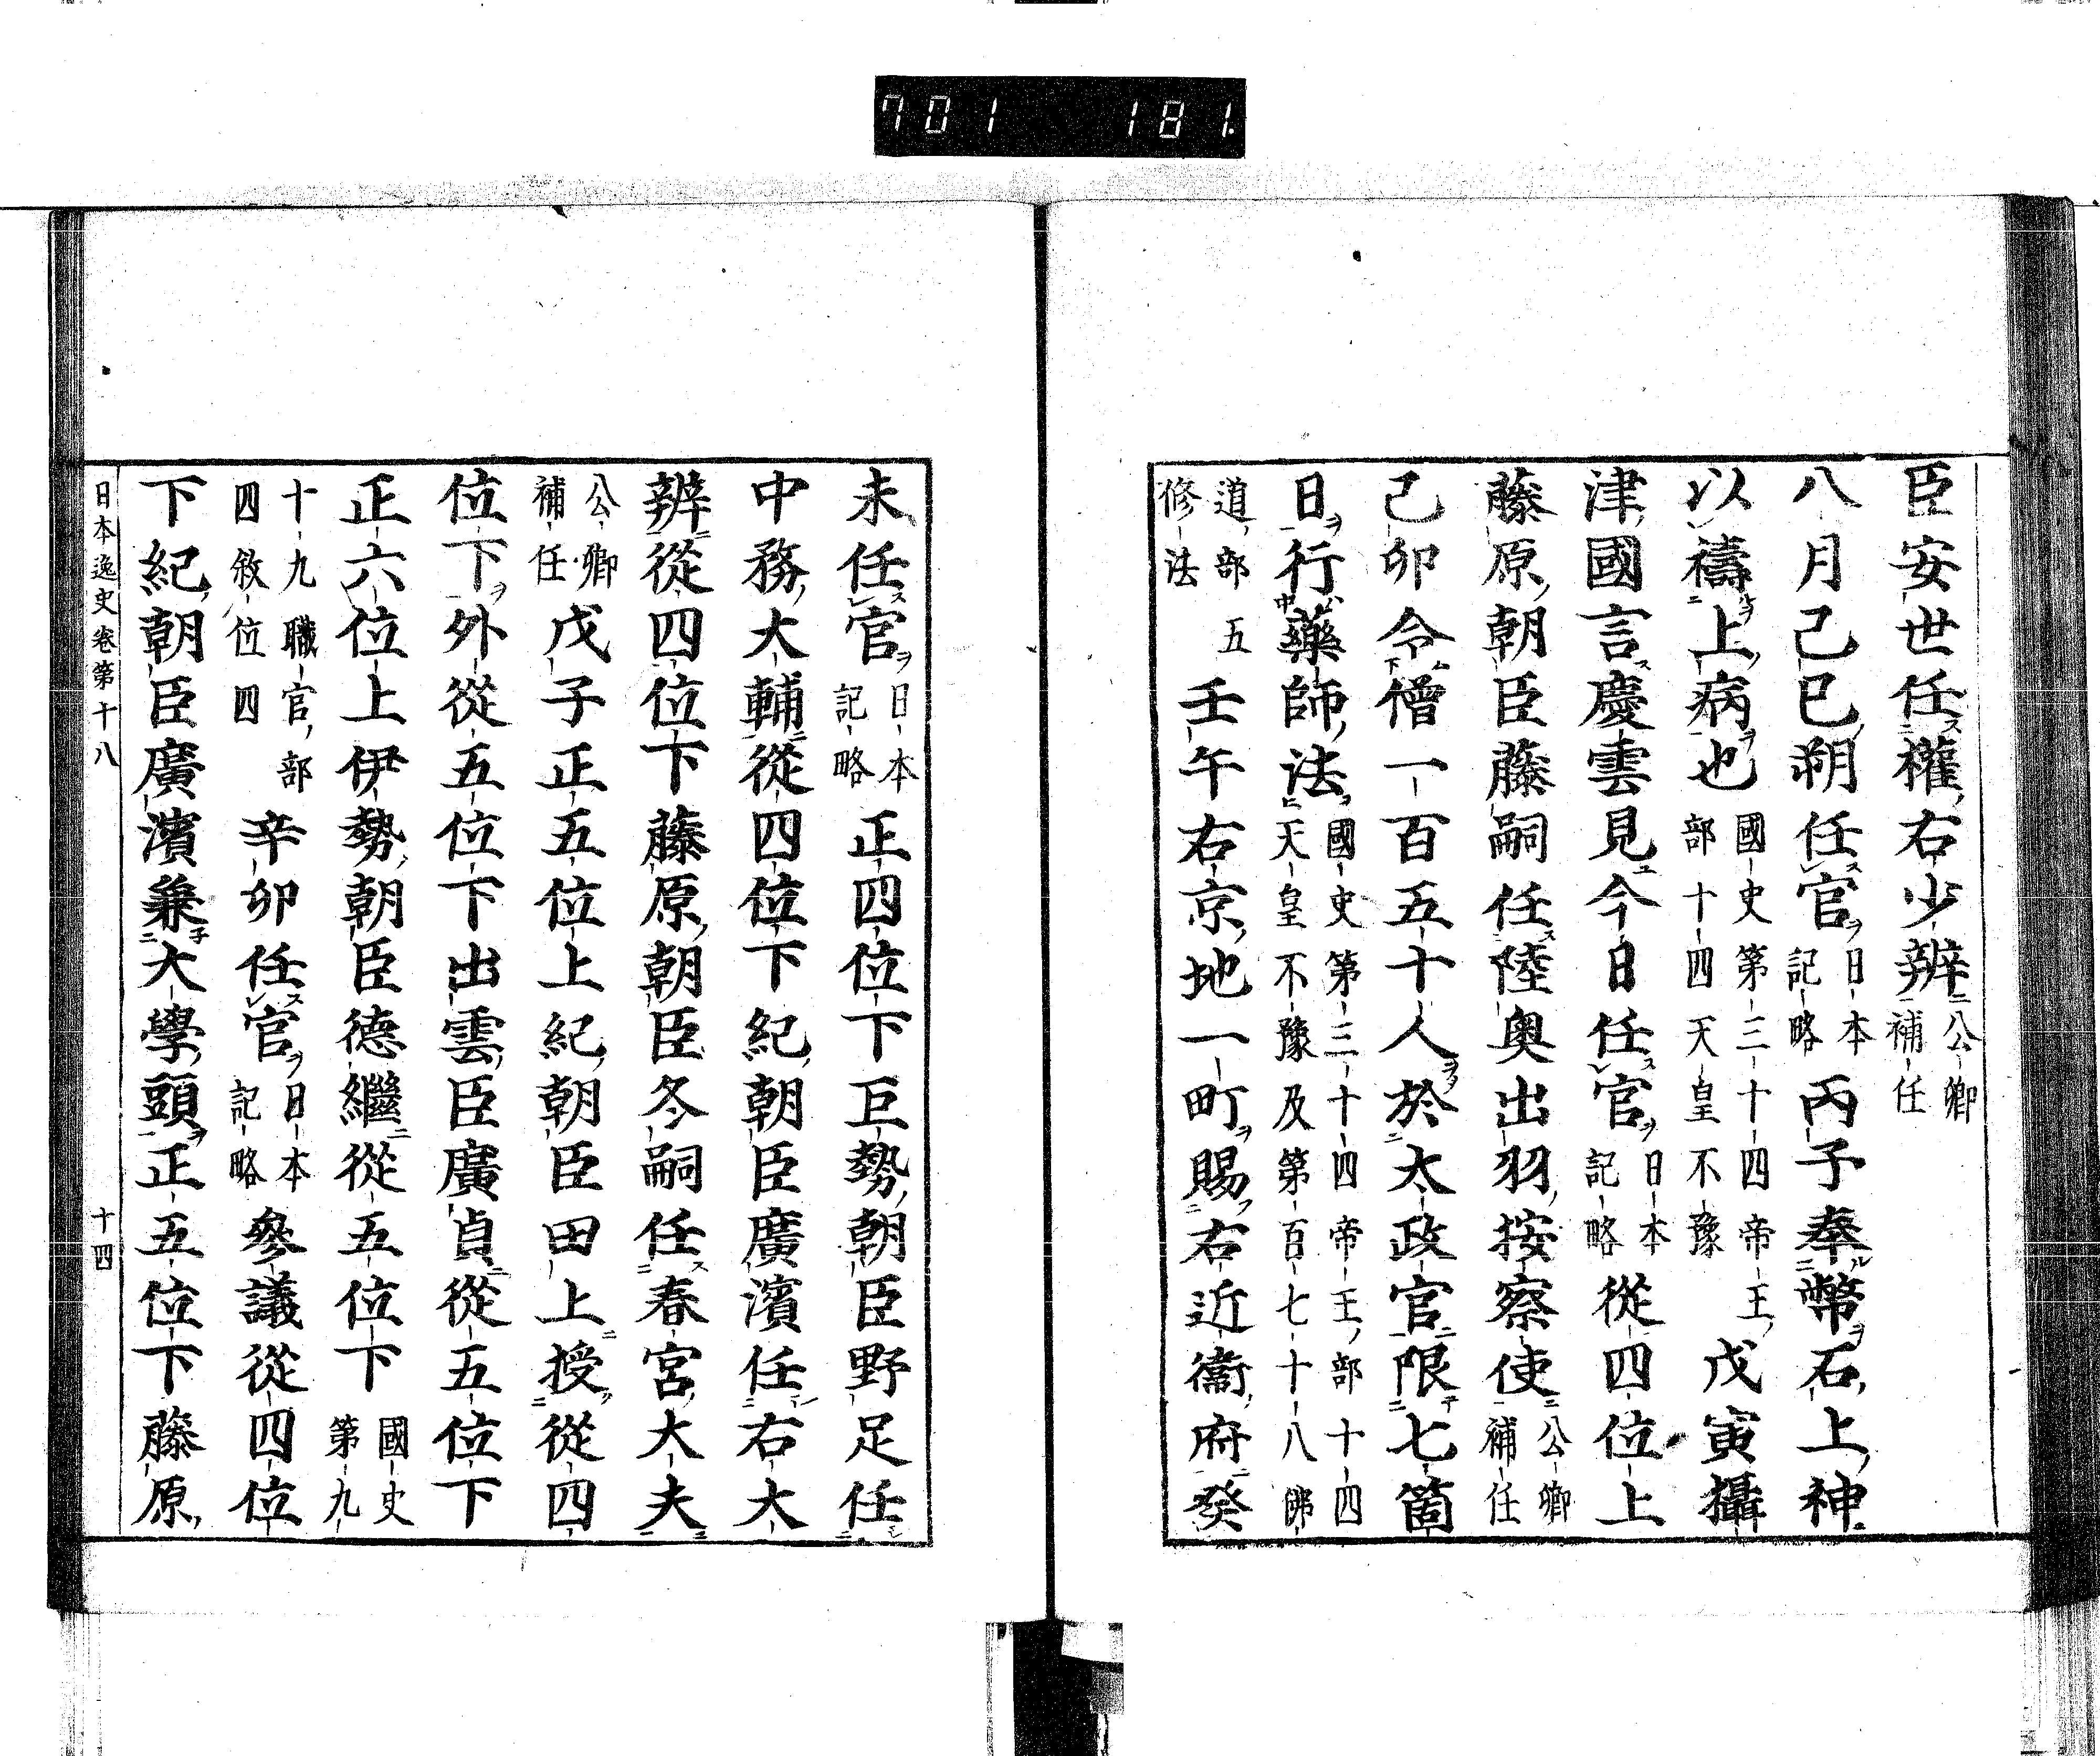 701 181.
臣安世任權右少辨公卿補任
八月己巳朔任官日本記略丙子奉幣石上神
以禱上病也國史第三十四帝王部十四天皇不豫戊寅攝
津國言慶雲見今日任官日本記略從四位上
藤原朝臣藤嗣任陸奧出羽按察使公卿補任
己卯令僧一百五十人於太政官限七箇
日行藥師法國史第三十四帝王部十四天皇不豫及第百七十八佛
道部五修法壬午右京地一町賜右近衞府癸
未任官日本記略正四位下巨勢朝臣野足任
中務大輔從四位下紀朝臣廣濱任右大
辨從四位下藤原朝臣冬嗣任春宮大夫
公卿補任戊子正五位上紀朝臣田上授從四
位下外從五位下出雲臣廣貞從五位下
正六位上伊勢朝臣德繼從五位下國史第九
十九職官部四敘位四辛卯任官日本記略參議從四位
下紀朝臣廣濱兼大學頭正五位下藤原
日本逸史卷第十八 十四